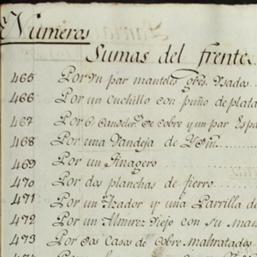 Numeros
Sumas del frente
465 Por Un par manteles gdes. Usados
466 Por un Cuchillo con puño de plata
467 Por 6 Candeler.s de Cobre y un par Espa
468 Por una Vandeja de
469 Por un Tinagero
470 Por dos planchas de fierro
471 Por un Azador y una Parrilla de
472 Por un Almirez Viejo con su man
473 Por dos Casos de Cobre maltratados